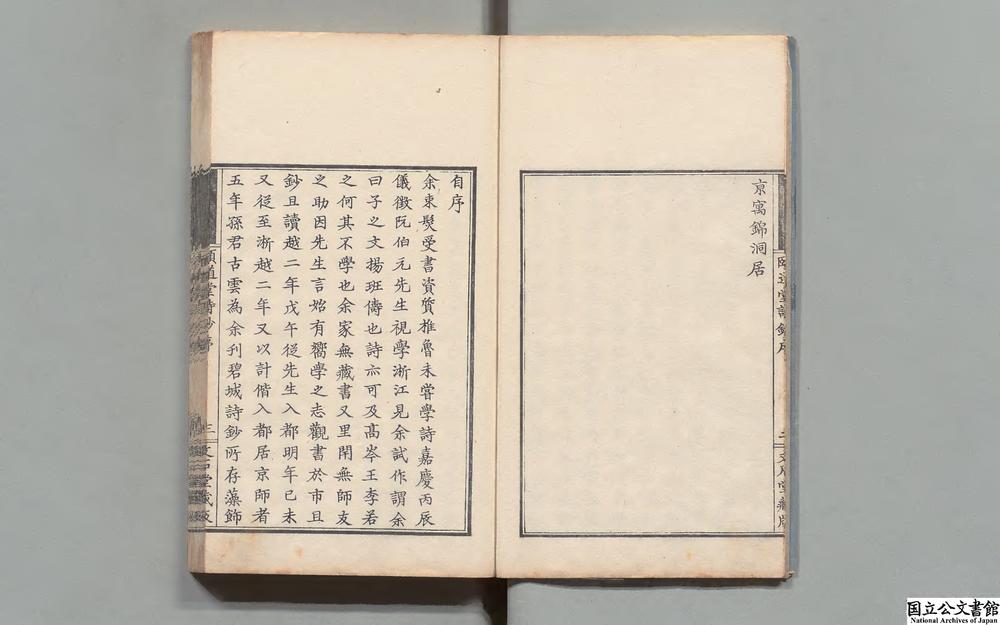 京寓錦洞居
頤道堂詩鈔序
二
文石堂藏版
自序
余束髮受書資質椎魯未嘗學詩嘉慶丙辰
儀徵阮伯元先生視學浙江見余試作謂余
曰子之文揚班儔也詩亦可及高岑王李若
之何其不學也余家無藏書又里閈無師友
之助因先生言始有嚮學之志觀書於市且
鈔且讀越二年戊午從先生入都明年己未
又從至浙越二年又以計偕入都居京師者
五年孫君古雲為余刊碧城詩鈔所存藻飾
頤道堂詩鈔序
三
文石堂藏版
国立公文書館
National Archives of Japan